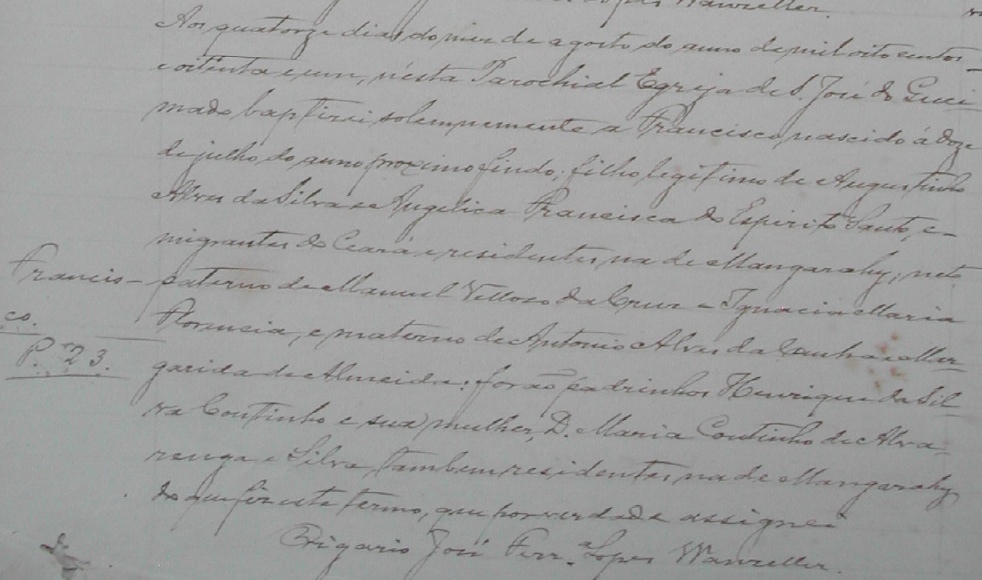 Lopes Wanzeller.
Aos quatorze dias do mez de agosto do anno de mil oito centos
e oitenta e um, n'esta Parochial Egreja de S. José do Quei
mado baptizei solemnemente a Francisco, nascido á doze
de julho do anno proximo findo; filho legitimo de Augustinho
Alves da Silva e Angelica Francisca do Espirito Santo, e-
migrantes do Ceará e residentes na de Mangarahy, neto
Francis-
co.
P. 23.
paterno de Manuel Velloso da Cruz e Ignacia Maria
Florencia, e materno de Antonio Alves da Cunha e Mar-
garida de Almeida; forão padrinhos Henrique da Sil-
va Coutinho e sua mulher, D. Maria Coutinho de Alva-
renga e Silva, tambem residentes na de Mangarahy
do que fiz este termo, que por verdade assignei
O Vigario José Ferr.ª Lopes Wanzeller.